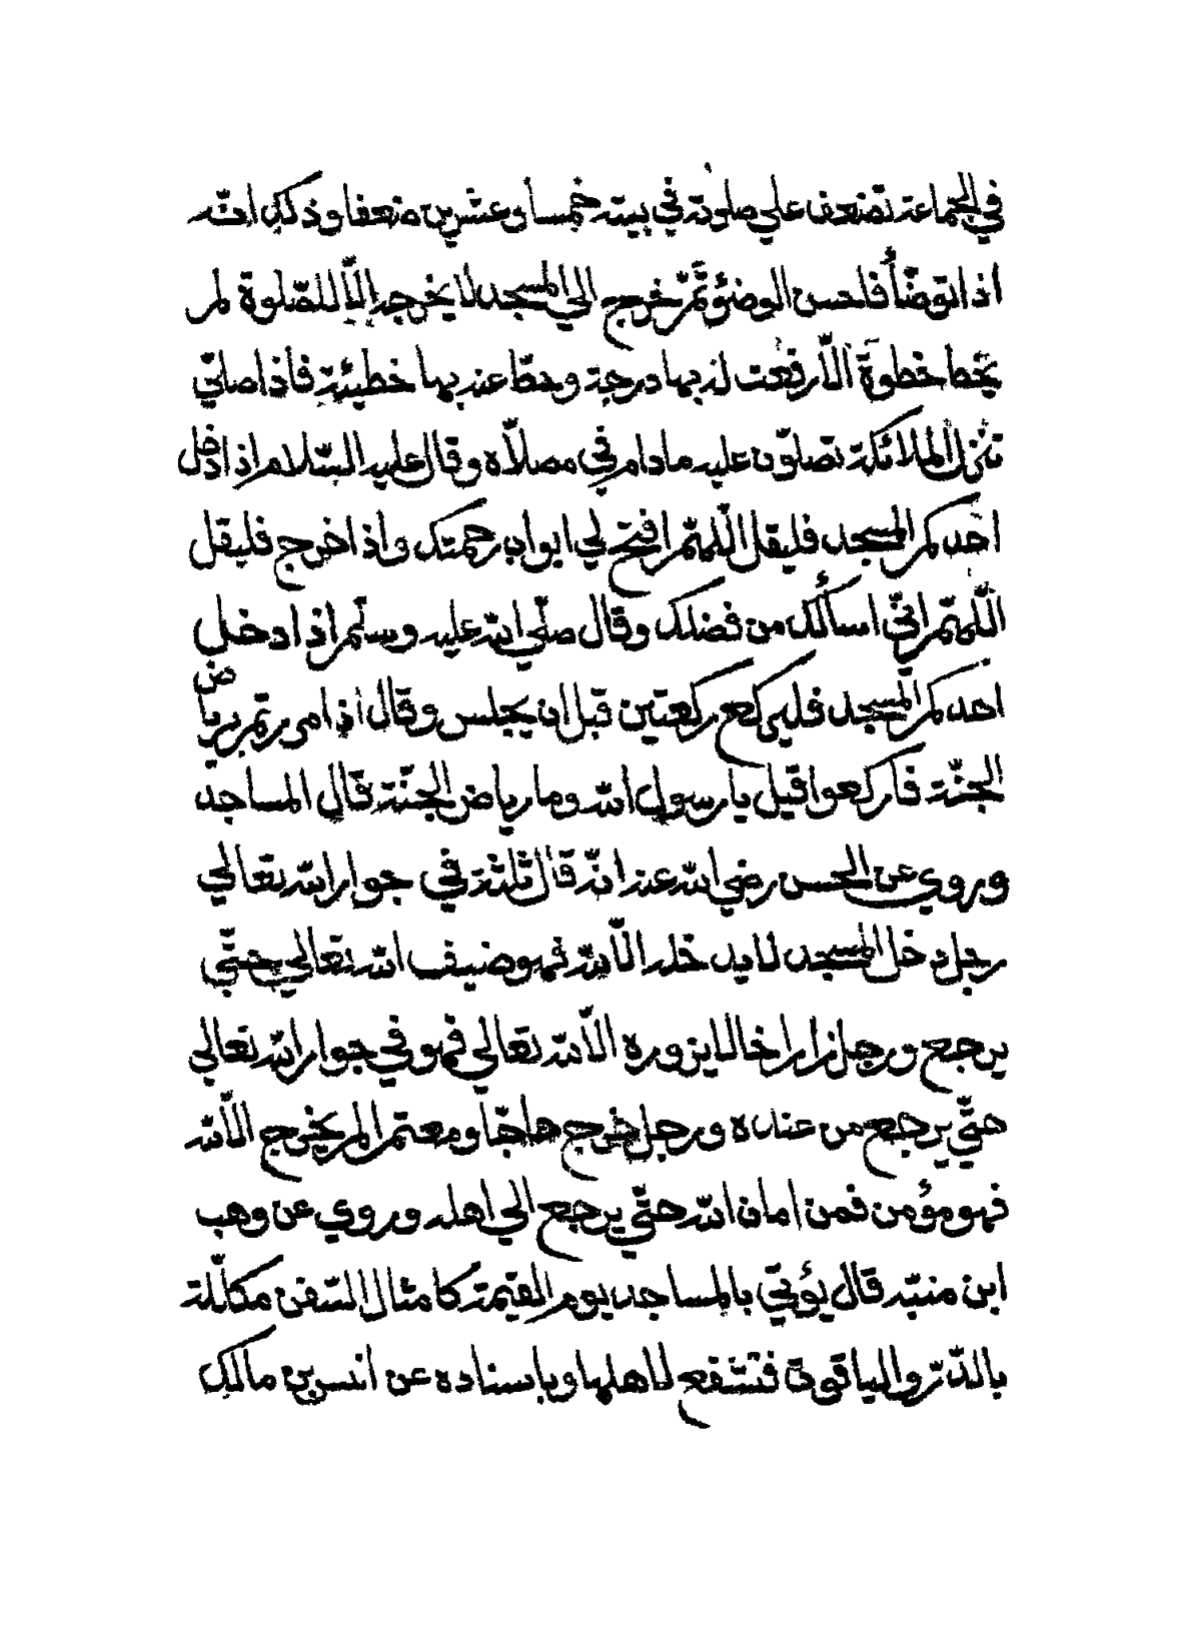 في الجماعة تضعف علي صلوته في بيته خمسا وعشرين ضعفا وذكك انّه
اذا توضّأ فاحسن الوضؤ ثمّ خرج الي المسجد لا يخرجه الّا للصّلوة لم
يخط خطوة الّا رفعت له بها درجة وحطّ عنه بها خطيئة فاذا صلّي
تنزل الملائكة تصلّون عليه مادام في مصلّاه وقال عليه السّلام اذا دخل
احدكم المسجد فليقل اللّهمّ افتح لي ابواب رحمتك واذا خرج فليقل
اللّهمّ انّي اسألك من فضلك وقال صلّي الله عليه وسلّم اذا دخل
احدكم المسجد فليركع ركعتين قبل ان يجلس وقال اذا مررتم برياض
الجنّة فاركعوا قيل يا رسول الله وما رياض الجنّة قال المساجد
وروي عن الحسن رضي الله عنه انّه قال ثلثة في جوار الله تعالي
رجل دخل المسجد لا يدخله الّا لله فهو ضيف الله تعالي حتّي
يرجع ورجل زار اخا لا يزوره الّا لله تعالي فهو في جوار الله تعالي
حتّي يرجع من عنده ورجل خرج حاجّا ومعتمرا لم يخرج الّا لله
فهو مؤمن فمن امان الله حتّي يرجع الي اهله وروي عن وهب
ابن منبّه قال يؤتي بالمساجد يوم القيمة كامثال السّفن مكلّلة
بالدّرّ والياقوت فتشفع لاهلها وباسناده عن انس بن مالك